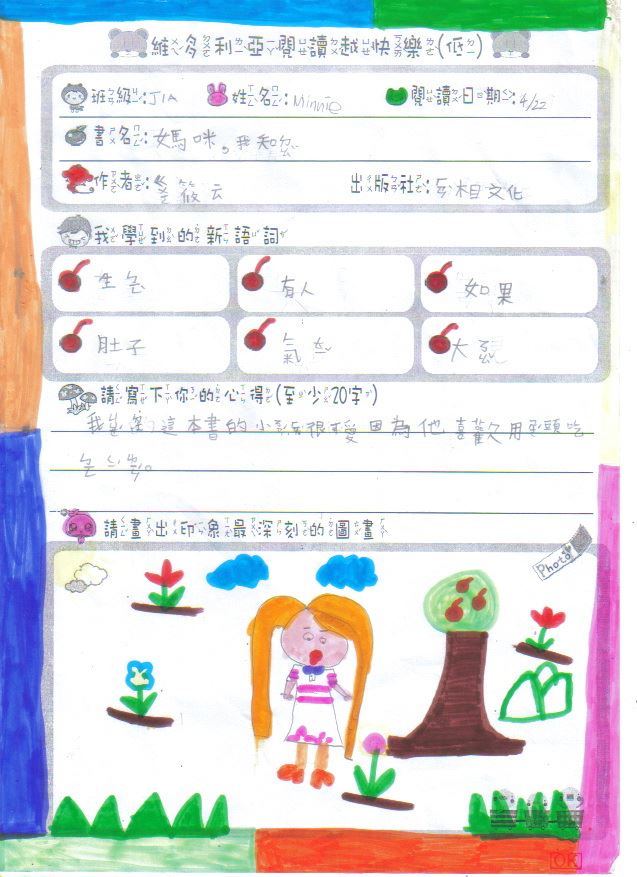 維多利亞閱讀越快樂(低)
班級:JIA 姓名:Minnie 閱讀日期:4/22
書名:媽咪。我和ㄋㄧˇ
作者: 筱云 出版社: 相文化
我學到的新語詞
生 有人 如果
肚子 氣 大
請寫下你的心得(至少20字)
我 這本書的小 很可愛因為他喜歡用 頭吃
請畫出印象最深刻的圖畫
Photo
OK